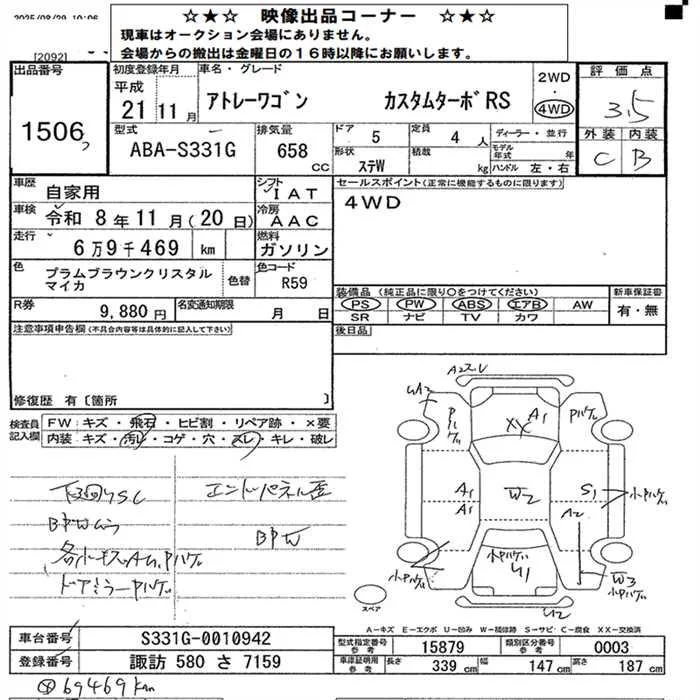 2025/08/29 10:06
☆★☆ 映像出品コーナー ☆★☆
現車はオークション会場にありません。
会場からの搬出は金曜日の16時以降にお願いします。
[2092]
出品番号
1506
初度登録年月
平成
21 11月
車名・グレード
アトレーワゴン カスタムターボRS
2WD
・
4WD
評価点
3.5
外装 内装
C B
型式
ABA-S331G
排気量
658
CC
ドア 5
定員 4 人
形状 ステW
積載 kg
ディーラー・並行
モデル年式 年
ハンドル 左・右
車歴 自家用
シフト IAT
セールスポイント(正常に機能するものに限ります)
4WD
車検 令和 8年11月(20日)
冷房 AAC
走行 6万9千469 km
燃料 ガソリン
色 プラムブラウンクリスタル
マイカ
色替
色コード R59
装備品 (純正品に限り○をつけてください)
PS・PW・ABS・エアB・AW
SR・ナビ・TV・カワ
新車保証書
有・無
R券 9,880円
名変通知期限 月 日
後日品
注意事項申告欄(不具合内容等は具体的に記入して下さい)
修復歴 有〔箇所 〕
検査員記入欄
FW キズ・飛石・ヒビ割・リペア跡・×要
内装 キズ・汚レ・コゲ・穴・スレ・キレ・破レ
エンドパネル歪
BPW
ドアミラーPハゲル
A2スレ
UA2
Pハゲル
XX
A1
Pハゲル
A1
A1
W2
S1
小Pハゲル
A2
小Pハゲル
小Pハゲル
U1
W3
小Pハゲル
U2
スペア
A-キズ E-エクボ U-凹み W-補修跡 S-サビ C-腐食 XX-交換済
車台番号 S331G-0010942
登録番号 諏訪 580 さ 7159
型式指定番号参考 15879
類別区分番号参考 0003
車庫証明用参考
長さ 339 cm
幅 147 cm
高さ 187 cm
69469km